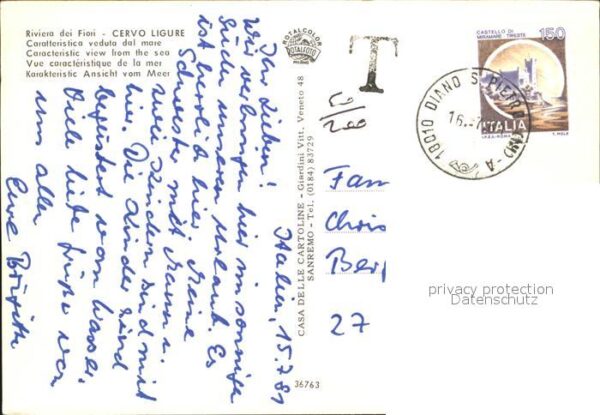 Riviera dei Fiori - CERVO LIGURE
Caratteristica veduta dal mare
Caracteristic view from the sea
Vue caractéristique de la mer
Karakteristic Ansicht vom Meer
ROTALCOLOR
ROTALFOTO
MILANO
T
50/200
CASTELLO DI
MIRAMARE TRIESTE
150
ITALIA
I.P.Z.S. - ROMA
18010 DIANO S. PIETRO
CASA DELLE CARTOLINE - Giardini Vitt. Veneto 48
SANREMO - Tel. (0184) 83729
36763
Italien, 15.7.81
Ihr Lieben!
Wir verbringen hier im sonnigen
Süden unseren Urlaub. Es
ist herrlich hier. Meine
Schwester mit Mann u.
zwei Kindern sind mit
hier. Die Kinder sind
begeistert vom Wasser.
Viele liebe Grüße von
uns allen
Eure Brigitte
Fam
Chris
Berg
27
privacy protection
Datenschutz